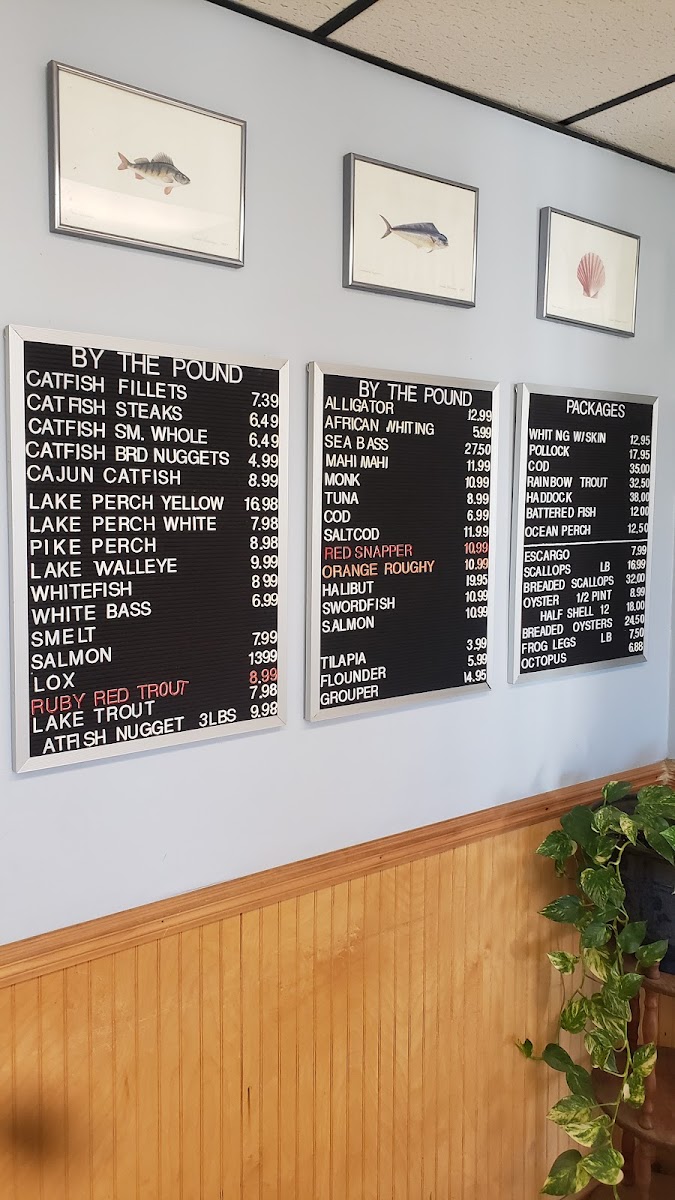 BY THE POUND
CATFISH FILLETS 7.39
CATFISH STEAKS 6.49
CATFISH SM. WHOLE 6.49
CATFISH BRD NUGGETS 4.99
CAJUN CATFISH 8.99
LAKE PERCH YELLOW 16.98
LAKE PERCH WHITE 7.98
PIKE PERCH 8.98
LAKE WALLEYE 9.99
WHITEFISH 8 99
WHITE BASS 6.99
SMELT
SALMON 7.99
LOX 1399
RUBY RED TROUT 8.99
LAKE TROUT 7.98
ATFISH NUGGET 3LBS 9.98
BY THE POUND
ALLIGATOR 12.99
AFRICAN WHITING 5.99
SEA BASS 27.50
MAHI MAHI 11.99
MONK 10.99
TUNA 8.99
COD 6.99
SALTCOD 11.99
RED SNAPPER 10.99
ORANGE ROUGHY 10.99
HALIBUT 19.95
SWORDFISH 10.99
SALMON 10.99
TILAPIA 3.99
FLOUNDER 5.99
GROUPER 14.95
PACKAGES
WHIT NG W/SKIN 12.95
POLLOCK 17.95
COD 35.00
RAINBOW TROUT 32.50
HADDOCK 38.00
BATTERED FISH 12.00
OCEAN PERCH 12.50
ESCARGO 7.99
SCALLOPS LB 16.99
BREADED SCALLOPS 32.00
OYSTER 1/2 PINT 8.99
HALF SHELL 12 18.00
BREADED OYSTERS 24.50
FROG LEGS LB 7.50
OCTOPUS 6.88